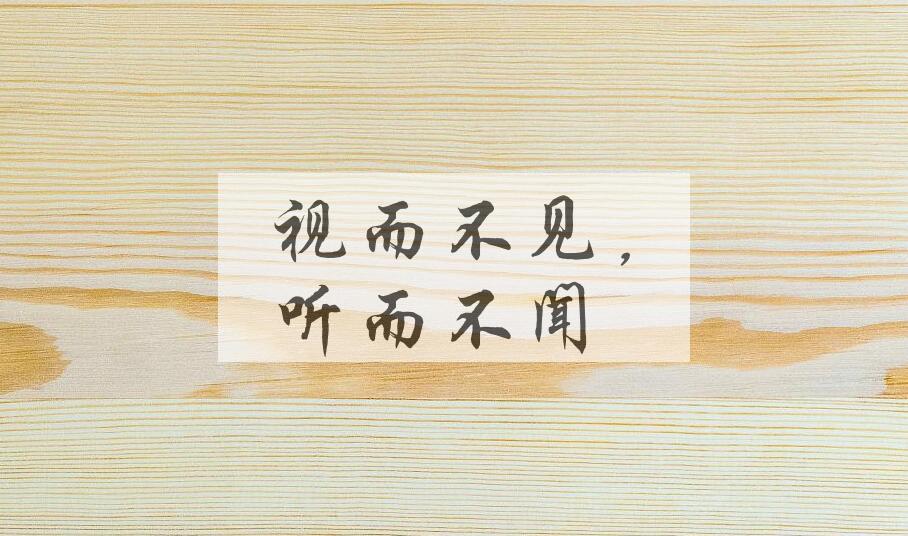 视而不见，
听而不闻